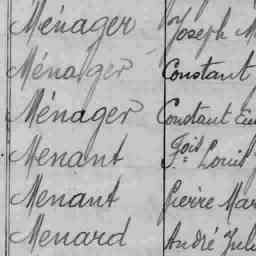 Ménager Joseph M
Ménager Constant
Ménager Constant Eu
Menant Fois Louis
Menant Pierre Mar
Menard André Jule